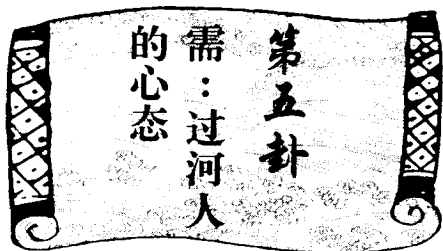 第五卦
需:过河人
的心态